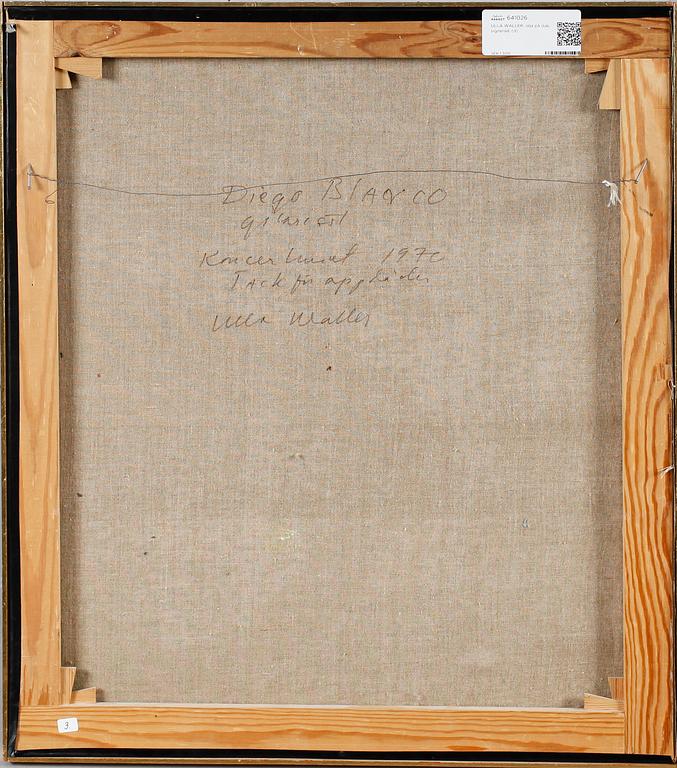 641026
ULLA WALLER, olja på duk,
signerad. (3)
Diego BlANCO
gitarrist
Konserthuset 197
TACK för
Ulla Waller
3